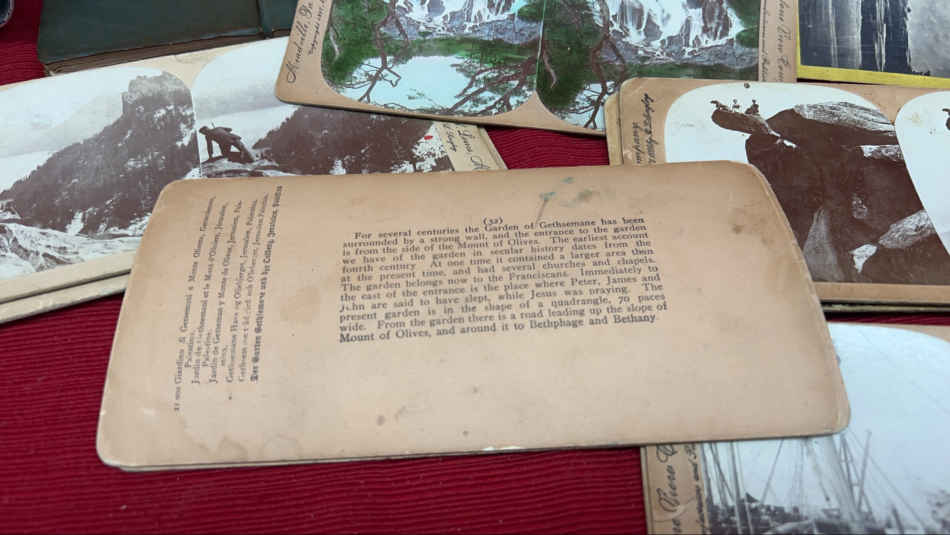 (32)
For several centuries the Garden of Gethsemane has been
surrounded by a strong wall, and the entrance to the garden
is from the side of the Mount of Olives. The earliest account
we have of the garden in secular history dates from the
fourth century. At one time it contained a larger area then
at the present time, and had several churches and chapels.
The garden belongs now to the Franciscans. Immediately to
the east of the entrance is the place where Peter, James and
John are said to have slept, while Jesus was praying. The
present garden is in the shape of a quadrangle, 70 paces
wide. From the garden there is a road leading up the slope of
Mount of Olives, and around it to Bethphage and Bethany.
Giardino di Getsemani e Monte Oliveto, Gerusalemme,
Palestina.
Jardin de Gethsemané et le Mont d'Oliviers, Jerusalem,
Palestine.
Jardin de Getsemani y Monte de Olivos, Jerusalem,
Gethsemane Have og Oliebjerget, Jerusalem, Palestina.
Der Garten Gethsemane und der Oelberg, Jerusalem, Palästina